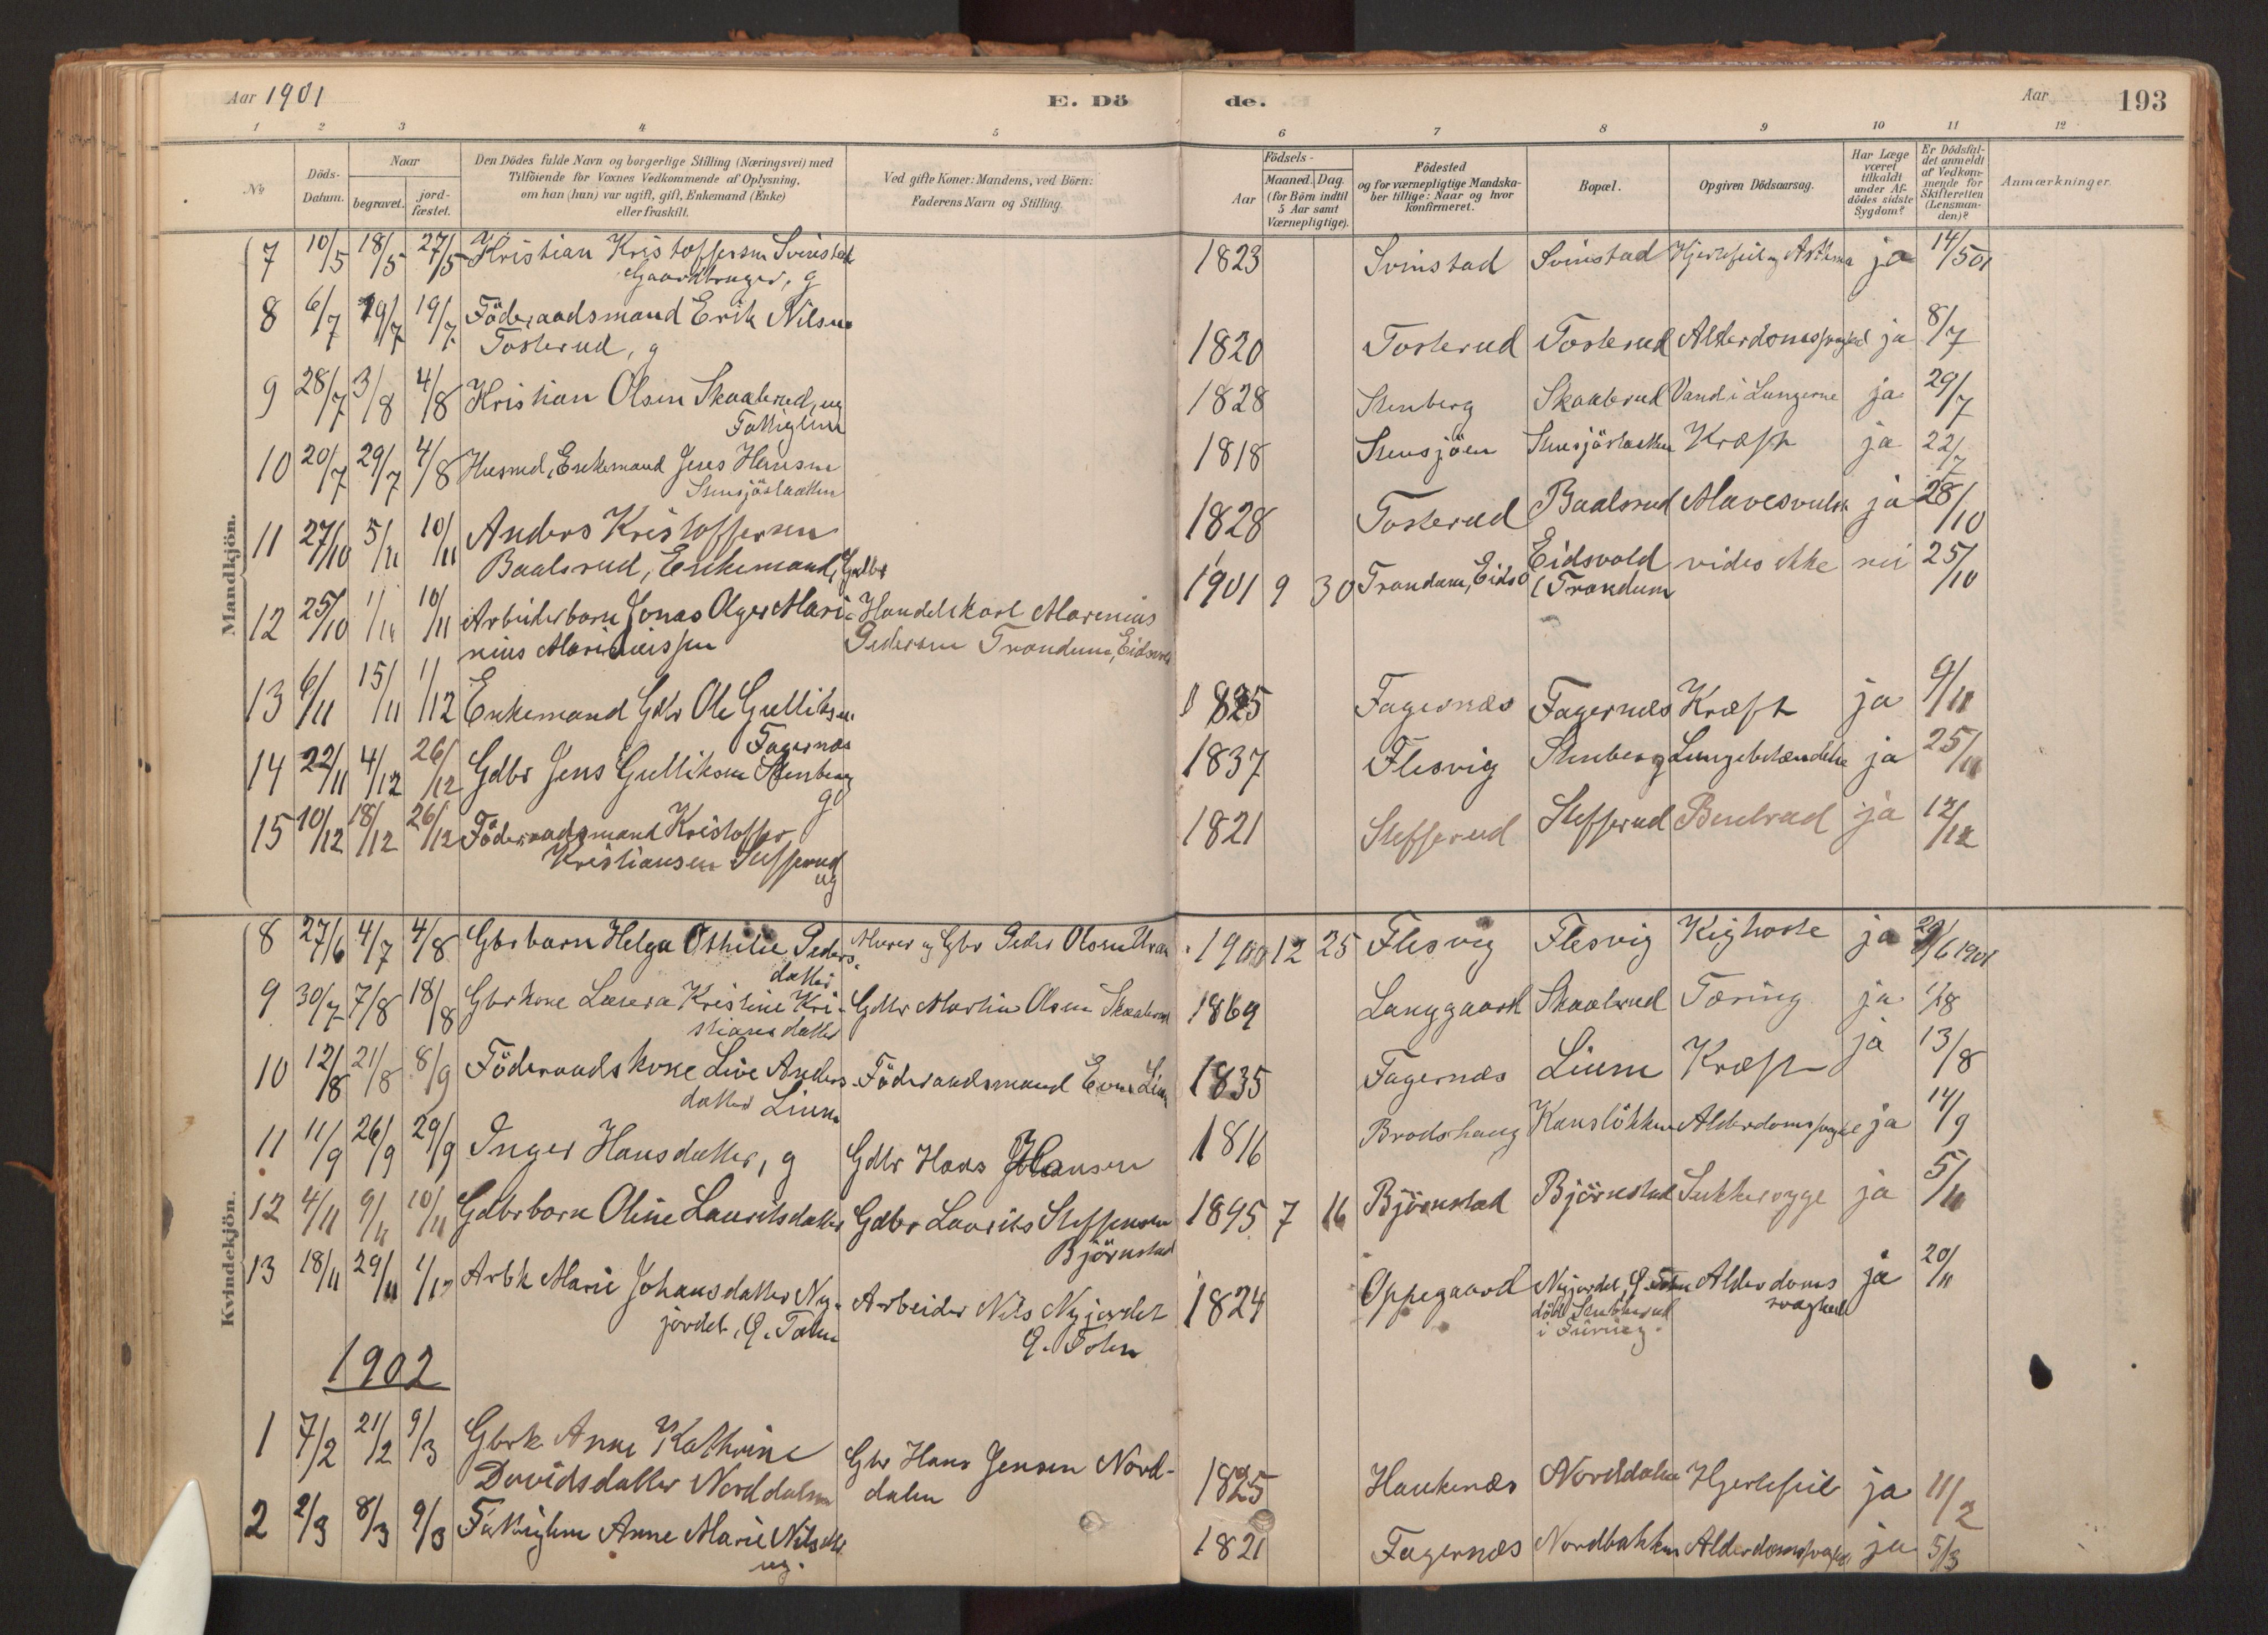 Aar 1901
E. Dö
de.
Aar
193
1 2 3 4 5 6 7 8 9 10 11 12
No
Döds-
Datum.
Naar
begravet.
jord-
fæstet.
Den Dödes fulde Navn og borgerlige Stilling (Næringsvei) med
Tilföiende for Voxnes Vedkommende af Oplysning,
om han (hun) var ugift, gift, Enkemand (Enke)
eller fraskilt.
Ved gifte Koner: Mandens, ved Börn:
Faderens Navn og Stilling.
Födsels-
Aar
Maaned. Dag.
(for Börn indtil
5 Aar samt
Værnepligtige).
Födested
og for værnepligtige Mandska-
ber tillige: Naar og hvor
konfirmeret.
Bopæl.
Opgiven Dödsaarsag.
Har Læge
været
tilkaldt
under Af-
dödes sidste
Sygdom?
Er Dödsfal-
det anmeldt
af Vedkom-
mende for
Skifteretten
(Lensman-
den)?
Anmærkninger.
Mandkjön.
7 10/5 18/5 27/5 Kristian Kristoffersen Svinstad 1823 Svinstad Svinstad Hjertefeil og Asthma ja 14/5 01
Gaardbruger, g
8 6/7 19/7 19/7 Föderaadsmand Erik Nilsen
Tosterud, g 1820 Tosterud Tosterud Alderdomssvaghed ja 8/7
9 28/7 3/8 4/8 Kristian Olsen Skaabrud, ug 1828 Stenberg Skaabrud Vand i Lungerne ja 29/7
Fattiglem
10 20/7 29/7 4/8 Husmd, Enkemand Jens Hansen 1818 Stensjöen Stensjöslaatten Kræft ja 22/7
Stensjöslaatten
11 27/10 5/11 10/11 Anders Kristoffersen 1828 Tosterud Baalsrud Mavesvulst ja 28/10
Baalsrud, Enkemand, Gdbr
12 25/10 1/11 10/11 Arbeiderbarn Jonas Olger Mari- Handelskarl Marenius 1901 9 30 Trandum, Eidsv Eidsvold vides ikke nei 25/10
nius Marinuissen Pedersen Trandum, Eidsvold (Trandum
13 6/11 15/11 1/12 Enkemand Gdbr Ole Gulliksen 1825 Fagernæs Fagernæs Kræft ja 9/11
Fagernæs
14 22/11 4/12 26/12 Gdbr Jens Gulliksen Stenberg 1837 Flesvig Stenberg Lungebetændelse ja 25/11
g
15 10/12 18/12 26/12 Föderaadsmand Kristoffer 1821 Stefferud Stefferud Benbrud ja 12/12
Kristiansen Stefferud
ug
Kvindekjön.
8 27/6 4/7 4/8 Gbrbarn Helga Othilie Peders- Murer og Gbr Peder Olsen 1900 12 25 Flesvig Flesvig Kighoste ja 29/6 1901
datter
9 30/7 7/8 18/8 Gbrkone Laura Kristine Kri- Gdbr Martin Olsen Skaabrud 1869 Langgaard Skaabrud Tæring ja 1/8
stiansdatter
10 12/8 21/8 8/9 Föderaadskone Live Anders- Föderaadsmand Even Lium 1835 Fagernæs Lium Kræft ja 13/8
datter Lium
11 11/9 26/9 29/9 Inger Hansdatter, g Gdbr Hans Hansen 1816 Brodshaug Kanslökken Alderdomssvaghed ja 14/9
12 4/11 9/11 10/11 Gdbrbarn Oline Lauritsdatter Gdbr Laurits Steffensen 1895 7 16 Björnstad Björnstad Sukkersyge ja 5/11
Björnstad
13 18/11 29/11 1/12 Arbk Marie Johansdatter Ny- Arbeider Nils Nyjordet 1824 Oppegaard Nyjordet, Ö. Toten Alderdoms ja 20/11
jordet, Ö. Toten Ö. Toten död Stubberud svaghed
i Fürung.
1902
1 7/2 21/2 9/3 Gbrk Anne Kathrine Gbr Hans Jensen Nord- 1825 Haukenæs Norddalen Hjertefeil ja 11/2
Davidsdatter Norddalen dalen
2 2/3 8/3 9/3 Fattiglem Anne Marie Nilsdtr 1821 Fagernæs Nordbakken Alderdomssvaghed ja 5/3
ug.